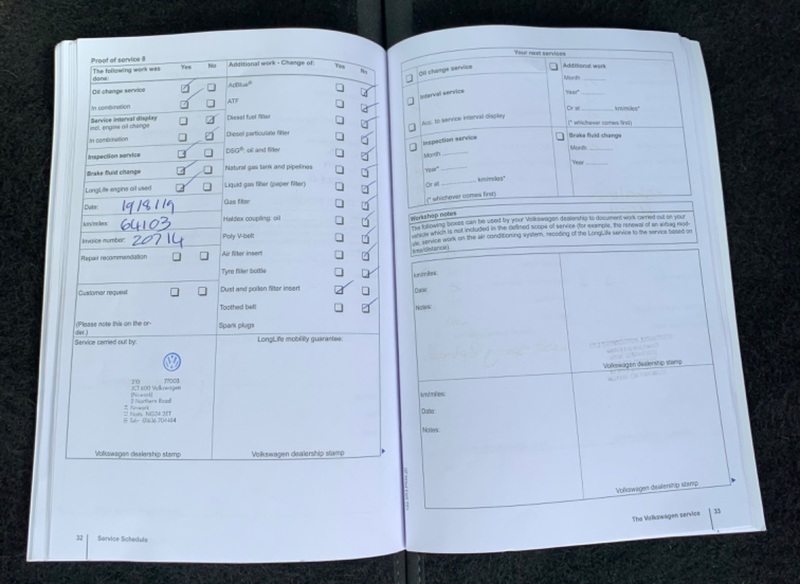 Proof of service 8
The following work was done: Yes No
Oil change service
In combination
Service interval display
incl. engine oil change
In combination
Inspection service
Brake fluid change
LongLife engine oil used
Date: 19/8/19
km/miles: 64103
Invoice number: 20714
Repair recommendation
Customer request
(Please note this on the or-
der.)
Additional work - Change of: Yes No
AdBlue®
ATF
Diesel fuel filter
Diesel particulate filter
DSG®: oil and filter
Natural gas tank and pipelines
Liquid gas filter (paper filter)
Gas filter
Haldex coupling: oil
Poly V-belt
Air filter insert
Tyre filler bottle
Dust and pollen filter insert
Toothed belt
Spark plugs
Service carried out by:
JCT600 Volkswagen
(Newark)
2 Northern Road
Newark
Notts NG24 2ET
Volkswagen dealership stamp
LongLife mobility guarantee:
Volkswagen dealership stamp
32 Service Schedule
Your next services
Oil change service
Interval service
Acc. to service interval display
Inspection service
Month ..........
Year* ..........
Or at .......... km/miles*
(* whichever comes first)
Additional work
Month ..........
Year* ..........
Or at .......... km/miles*
(* whichever comes first)
Brake fluid change
Month ..........
Year ..........
Workshop notes
The following boxes can be used by your Volkswagen dealership to document work carried out on your
vehicle which is not included in the defined scope of service (for example, the renewal of an airbag mod-
ule, service work on the air conditioning system, recoding of the LongLife service to the service based on
time/distance).
km/miles:
Date:
Notes:
Volkswagen dealership stamp
km/miles:
Date:
Notes:
Volkswagen dealership stamp
The Volkswagen service 33